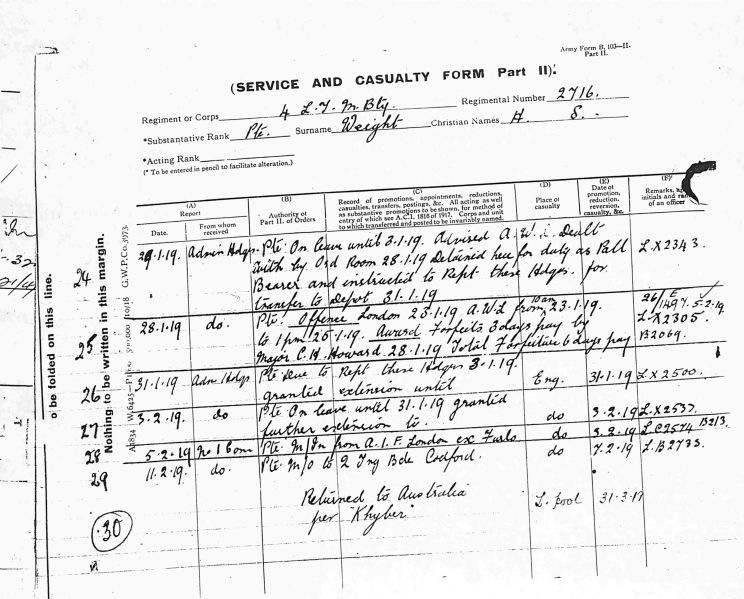 Army Form B. 103—II.
Part II.
(SERVICE AND CASUALTY FORM Part II).
Regiment or Corps 4 L.T.M.Bty. Regimental Number 2716.
*Substantive Rank Pte. Surname Weight Christian Names H. S.
*Acting Rank
(* To be entered in pencil to facilitate alteration.)
(A) Report
Date.
From whom received
(B) Authority of Part II. of Orders
(C) Record of promotions, appointments, reductions,
casualties, transfers, postings, &c. All acting as well
as substantive promotions to be shown, for method of
entry of which see A.C.I. 1816 of 1917. Corps and unit
to which transferred and posted to be invariably named.
(D) Place of casualty
(E) Date of promotion, reduction, reversion, casualty, &c.
(F) Remarks, and initials of an officer
24 29.1.19. Admin Hdqrs. Pte. On leave until 3.1.19. Advised A.W.L. Dealt
with by Ord Room 28.1.19 Detained here for duty as Pall L.X2343.
Bearer and instructed to Rept these Hdqrs. for
transfer to Depot 31.1.19
25 28.1.19 do. Pte. Offence London 23.1.19 A.W.L from 23.1.19. 26/E 1497. 5.2.19.
to 1pm 25.1.19. Award Forfeits 3 days pay by L.X2305.
Major C.H. Howard 28.1.19 Total Forfeiture 6 days pay B2069.
26 31.1.19 Adm Hdqrs Pte Due to Rept these Hdqrs 3.1.19.
granted extension until Eng. 31.1.19 L.X2500.
27 3.2.19. do Pte On leave until 31.1.19 granted
further extension to. do 3.2.19 L.X2537.
28 5.2.19 No 1 Com Pte. M/In from A.I.F. London ex Furlo do 3.2.19 L.C2574 B213.
29 11.2.19. do. Pte. M/O to 2 Tng Bde Codford. do 7.2.19 L.B2733.
30 Returned to Australia L.pool 31.3.19
per "Khyber"
Nothing to be written in this margin.
o be folded on this line.
G.W.P.Co. 3973.